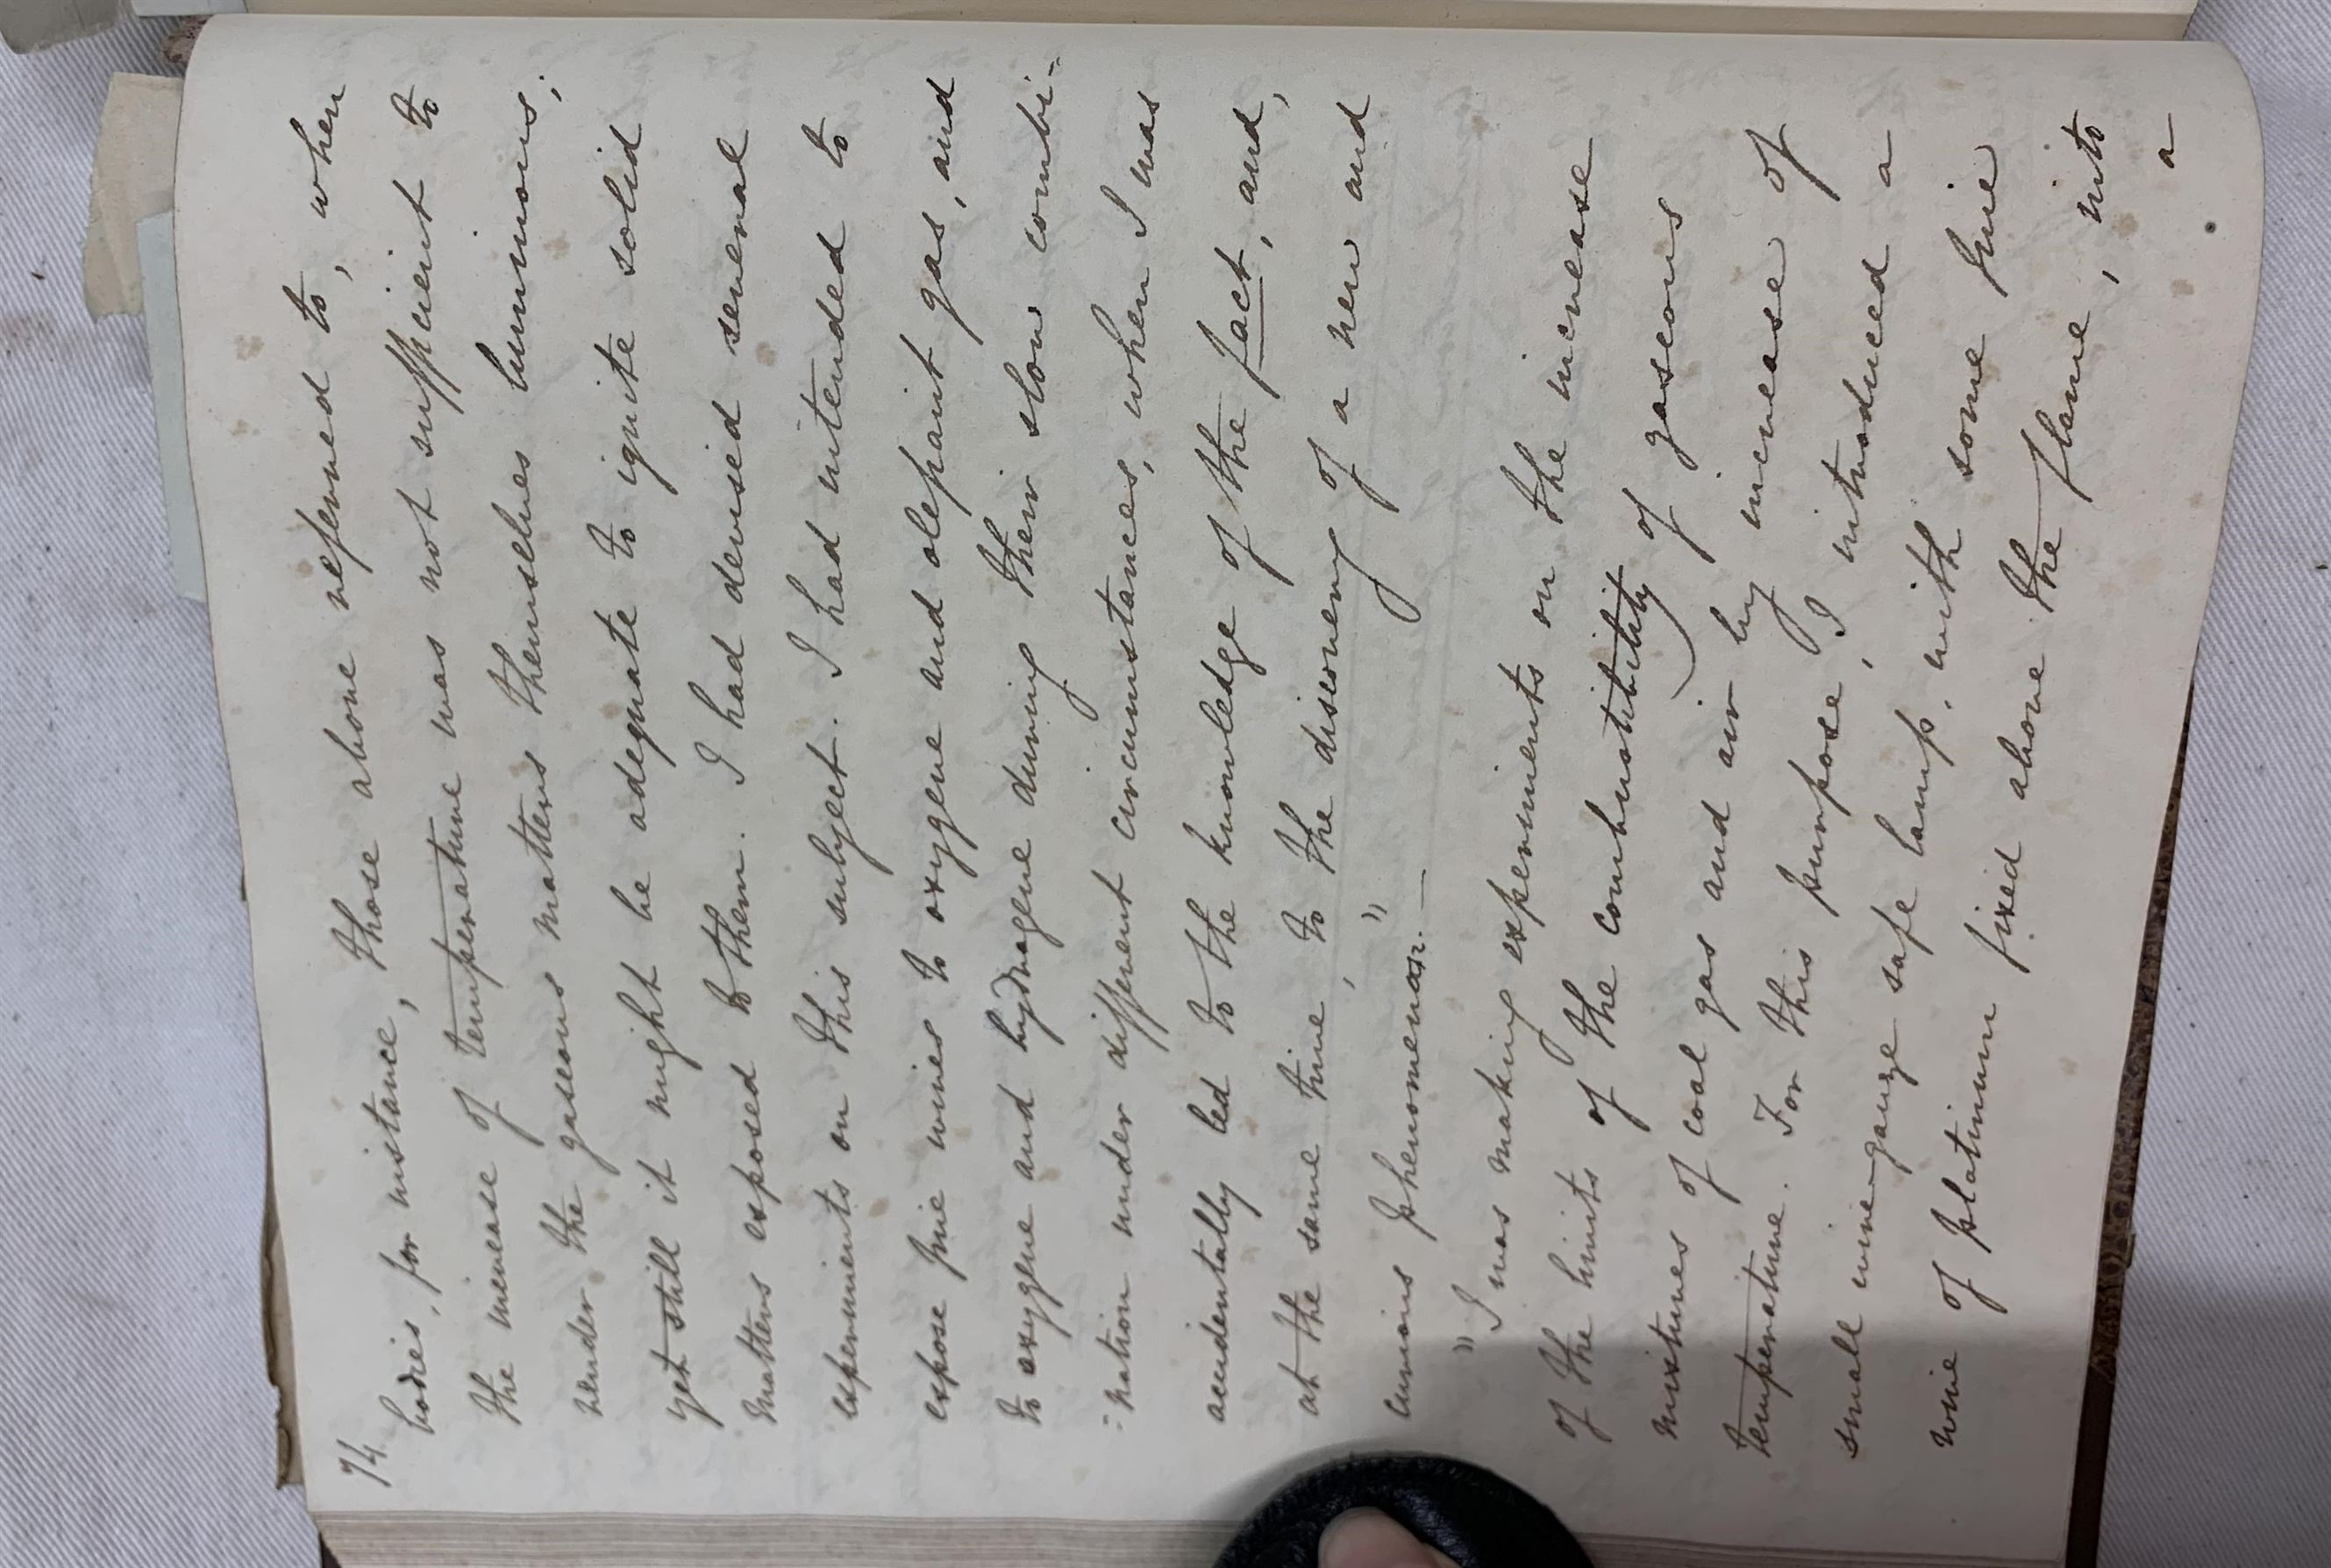 74.
bodies, for instance, those above referred to, when
the increase of temperature was not sufficient to
render the gaseous matters themselves luminous;
yet still it might be adequate to ignite solid
matters exposed to them. I had devised several
experiments on this subject. I had intended to
expose fine wires to oxygene and olefiant gas, and
to oxygene and hydrogene during their slow combi-
-nation under different circumstances, when I was
accidentally led to the knowledge of the fact, and,
at the same time, to the discovery of a new and
curious phenomenon." —
" I was making experiments on the increase
of the limits of the combustibility of gaseous
mixtures of coal gas and air by increase of
temperature. For this purpose, I introduced a
small wire-gauze safe lamp, with some fine
wire of platinum fixed above the flame, into
a